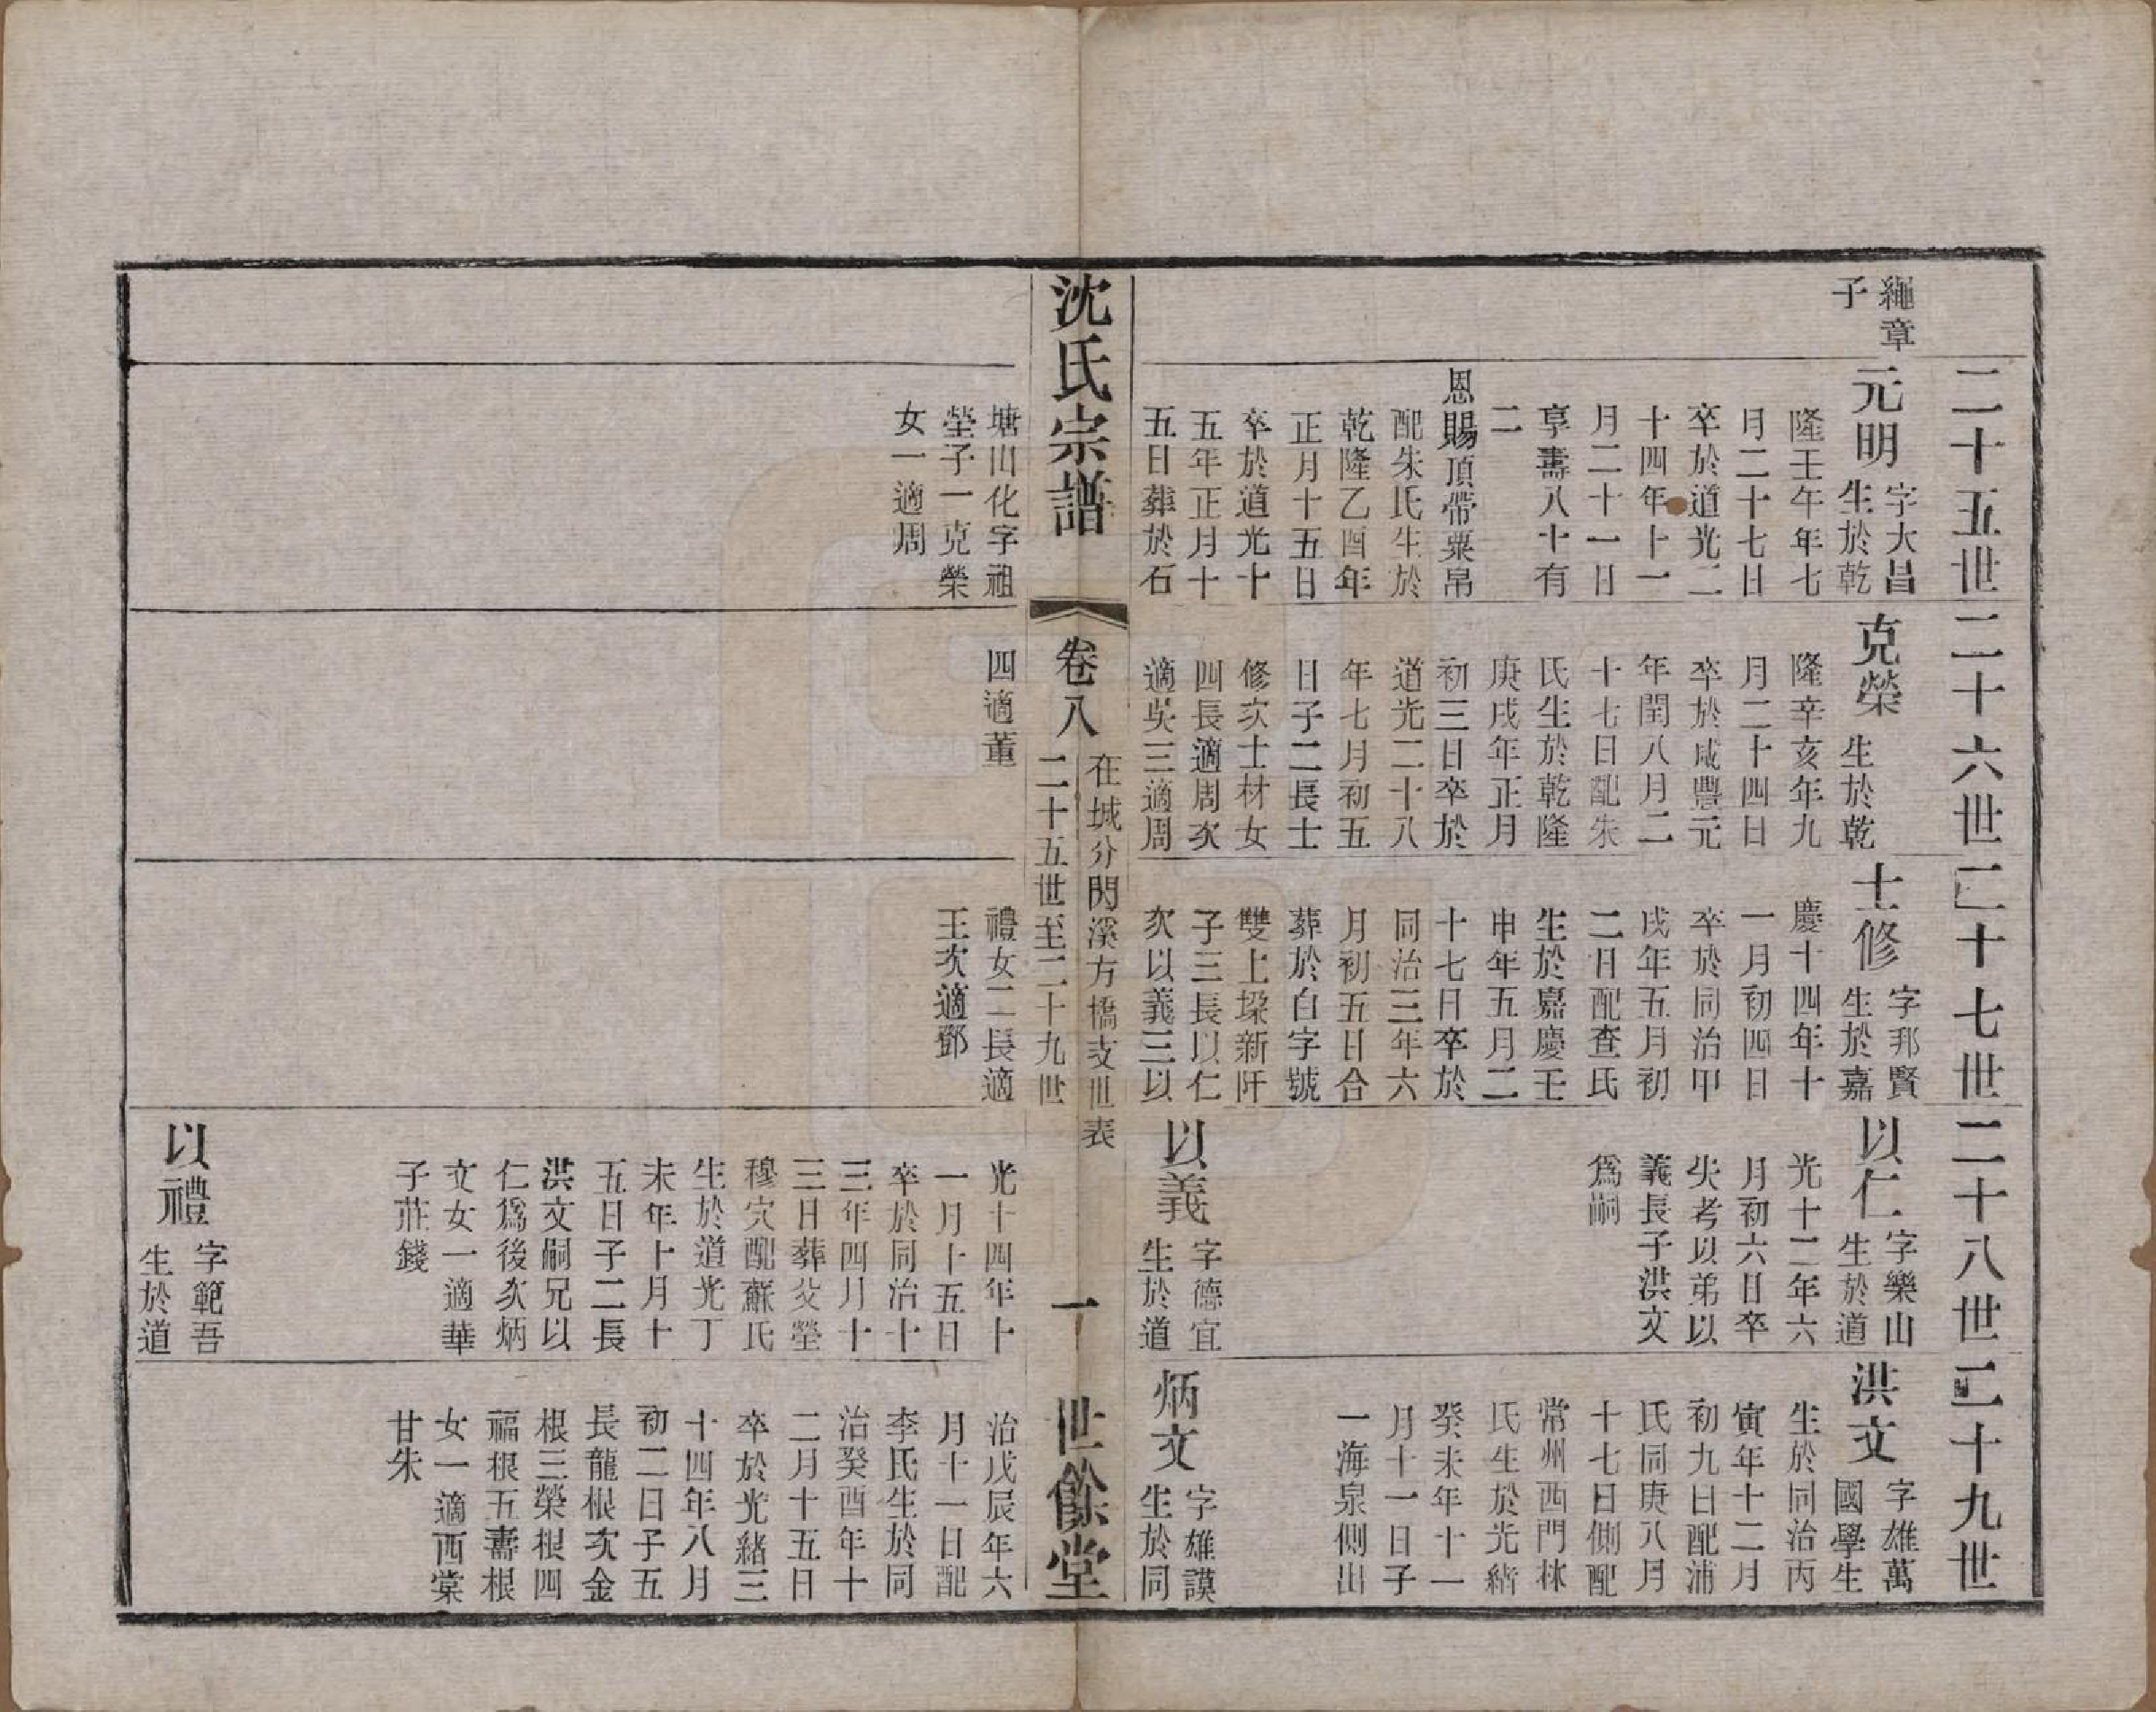 二十五世
二十六世
二十七世
二十八世
二十九世
繩章
子
元明
字大昌
生於乾
隆壬午年七
月二十七日
卒於道光二
十四年十一
月二十一日
享壽八十有
二
恩賜頂帶粟帛
配朱氏生於
乾隆乙酉年
正月十五日
卒於道光十
五年正月十
五日葬於石
塘山化字祖
塋子一克榮
女一適周
克榮
生於乾
隆辛亥年九
月二十四日
卒於咸豐元
年閏八月二
十七日配朱
氏生於乾隆
庚戌年正月
初三日卒於
道光二十八
年七月初五
日子二長士
修次士材女
四長適周次
適吳三適周
四適董
士修
字邦賢
生於嘉
慶十四年十
一月初四日
卒於同治甲
戌年五月初
二日配查氏
生於嘉慶壬
申年五月二
十七日卒於
同治三年六
月初五日合
葬於白字號
雙上墚新阡
子三長以仁
次以義三以
禮女二長適
王次適鄧
以仁
字樂山
生於道
光十二年六
月初六日卒
失考以弟以
義長子洪文
爲嗣
以義
字德宜
生於道
光十四年十
一月十五日
卒於同治十
三年四月十
三日葬父塋
穆穴配蘇氏
生於道光丁
未年十月十
五日子二長
洪文嗣兄以
仁爲後次炳
文女一適華
子莊錢
以禮
字範吾
生於道
洪文
字雄萬
國學生
生於同治丙
寅年十二月
初九日配浦
氏同庚八月
十七日側配
常州西門林
氏生於光緒
癸未年十一
月十一日子
一海泉側出
炳文
字雄謨
生於同
治戊辰年六
月十一日配
李氏生於同
治癸酉年十
二月十五日
卒於光緒三
十四年八月
初二日子五
長龍根次金
根三榮根四
福根五壽根
女一適西棠
甘朱
沈氏宗譜
卷八
在城分閃溪方橋支世表
二十五世至二十九世
一
世餘堂